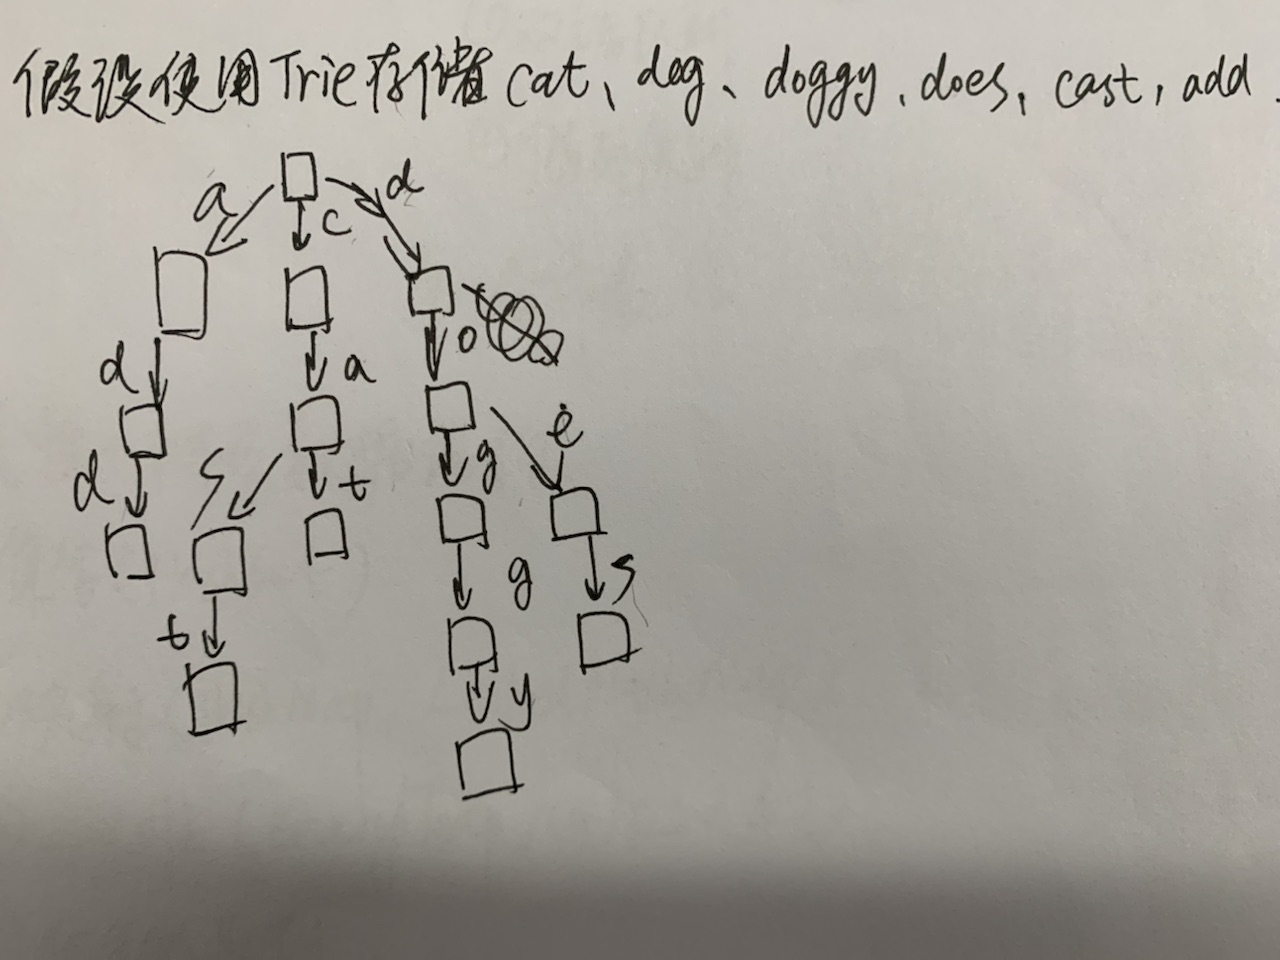 假设使用Trie存储 cat、dog、doggy、does, cast, add.
a c d
d a o
s t g e
d
t g s
y